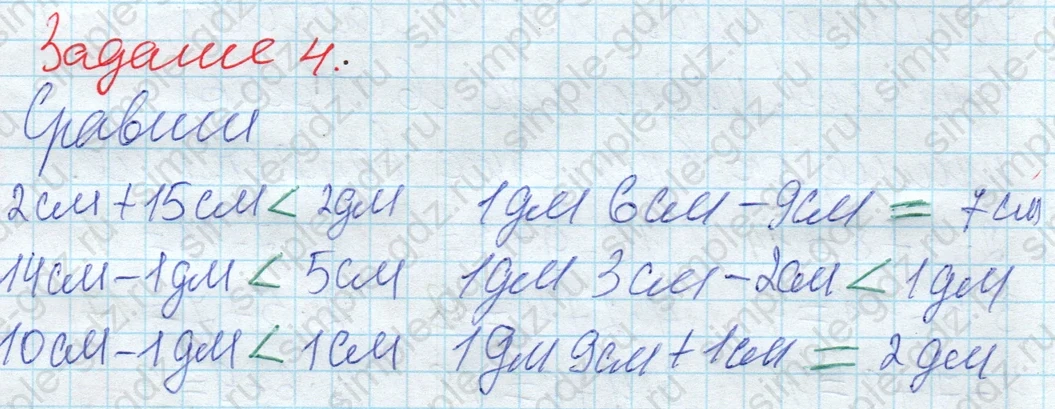 Задание 4.
Сравни
2см + 15см < 2дм 1дм 6см - 9см = 7см
14см - 1дм < 5см 1дм 3см - 2см < 1дм
10см - 1дм < 1см 1дм 9см + 1см = 2дм
simple-gdz.ru